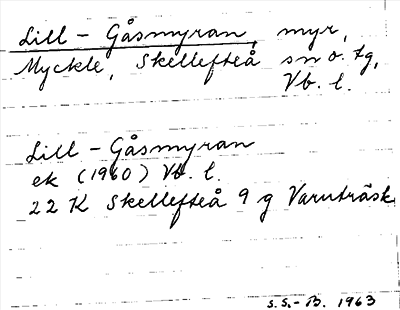 Lill-Gåsmyran, myr,
Myckle, Skellefteå sn o. tg,
Vb. l.
Lill-Gåsmyran
ek (1960) Vb. l.
22 K Skellefteå 9 g Varuträsk
S.S.-B. 1963